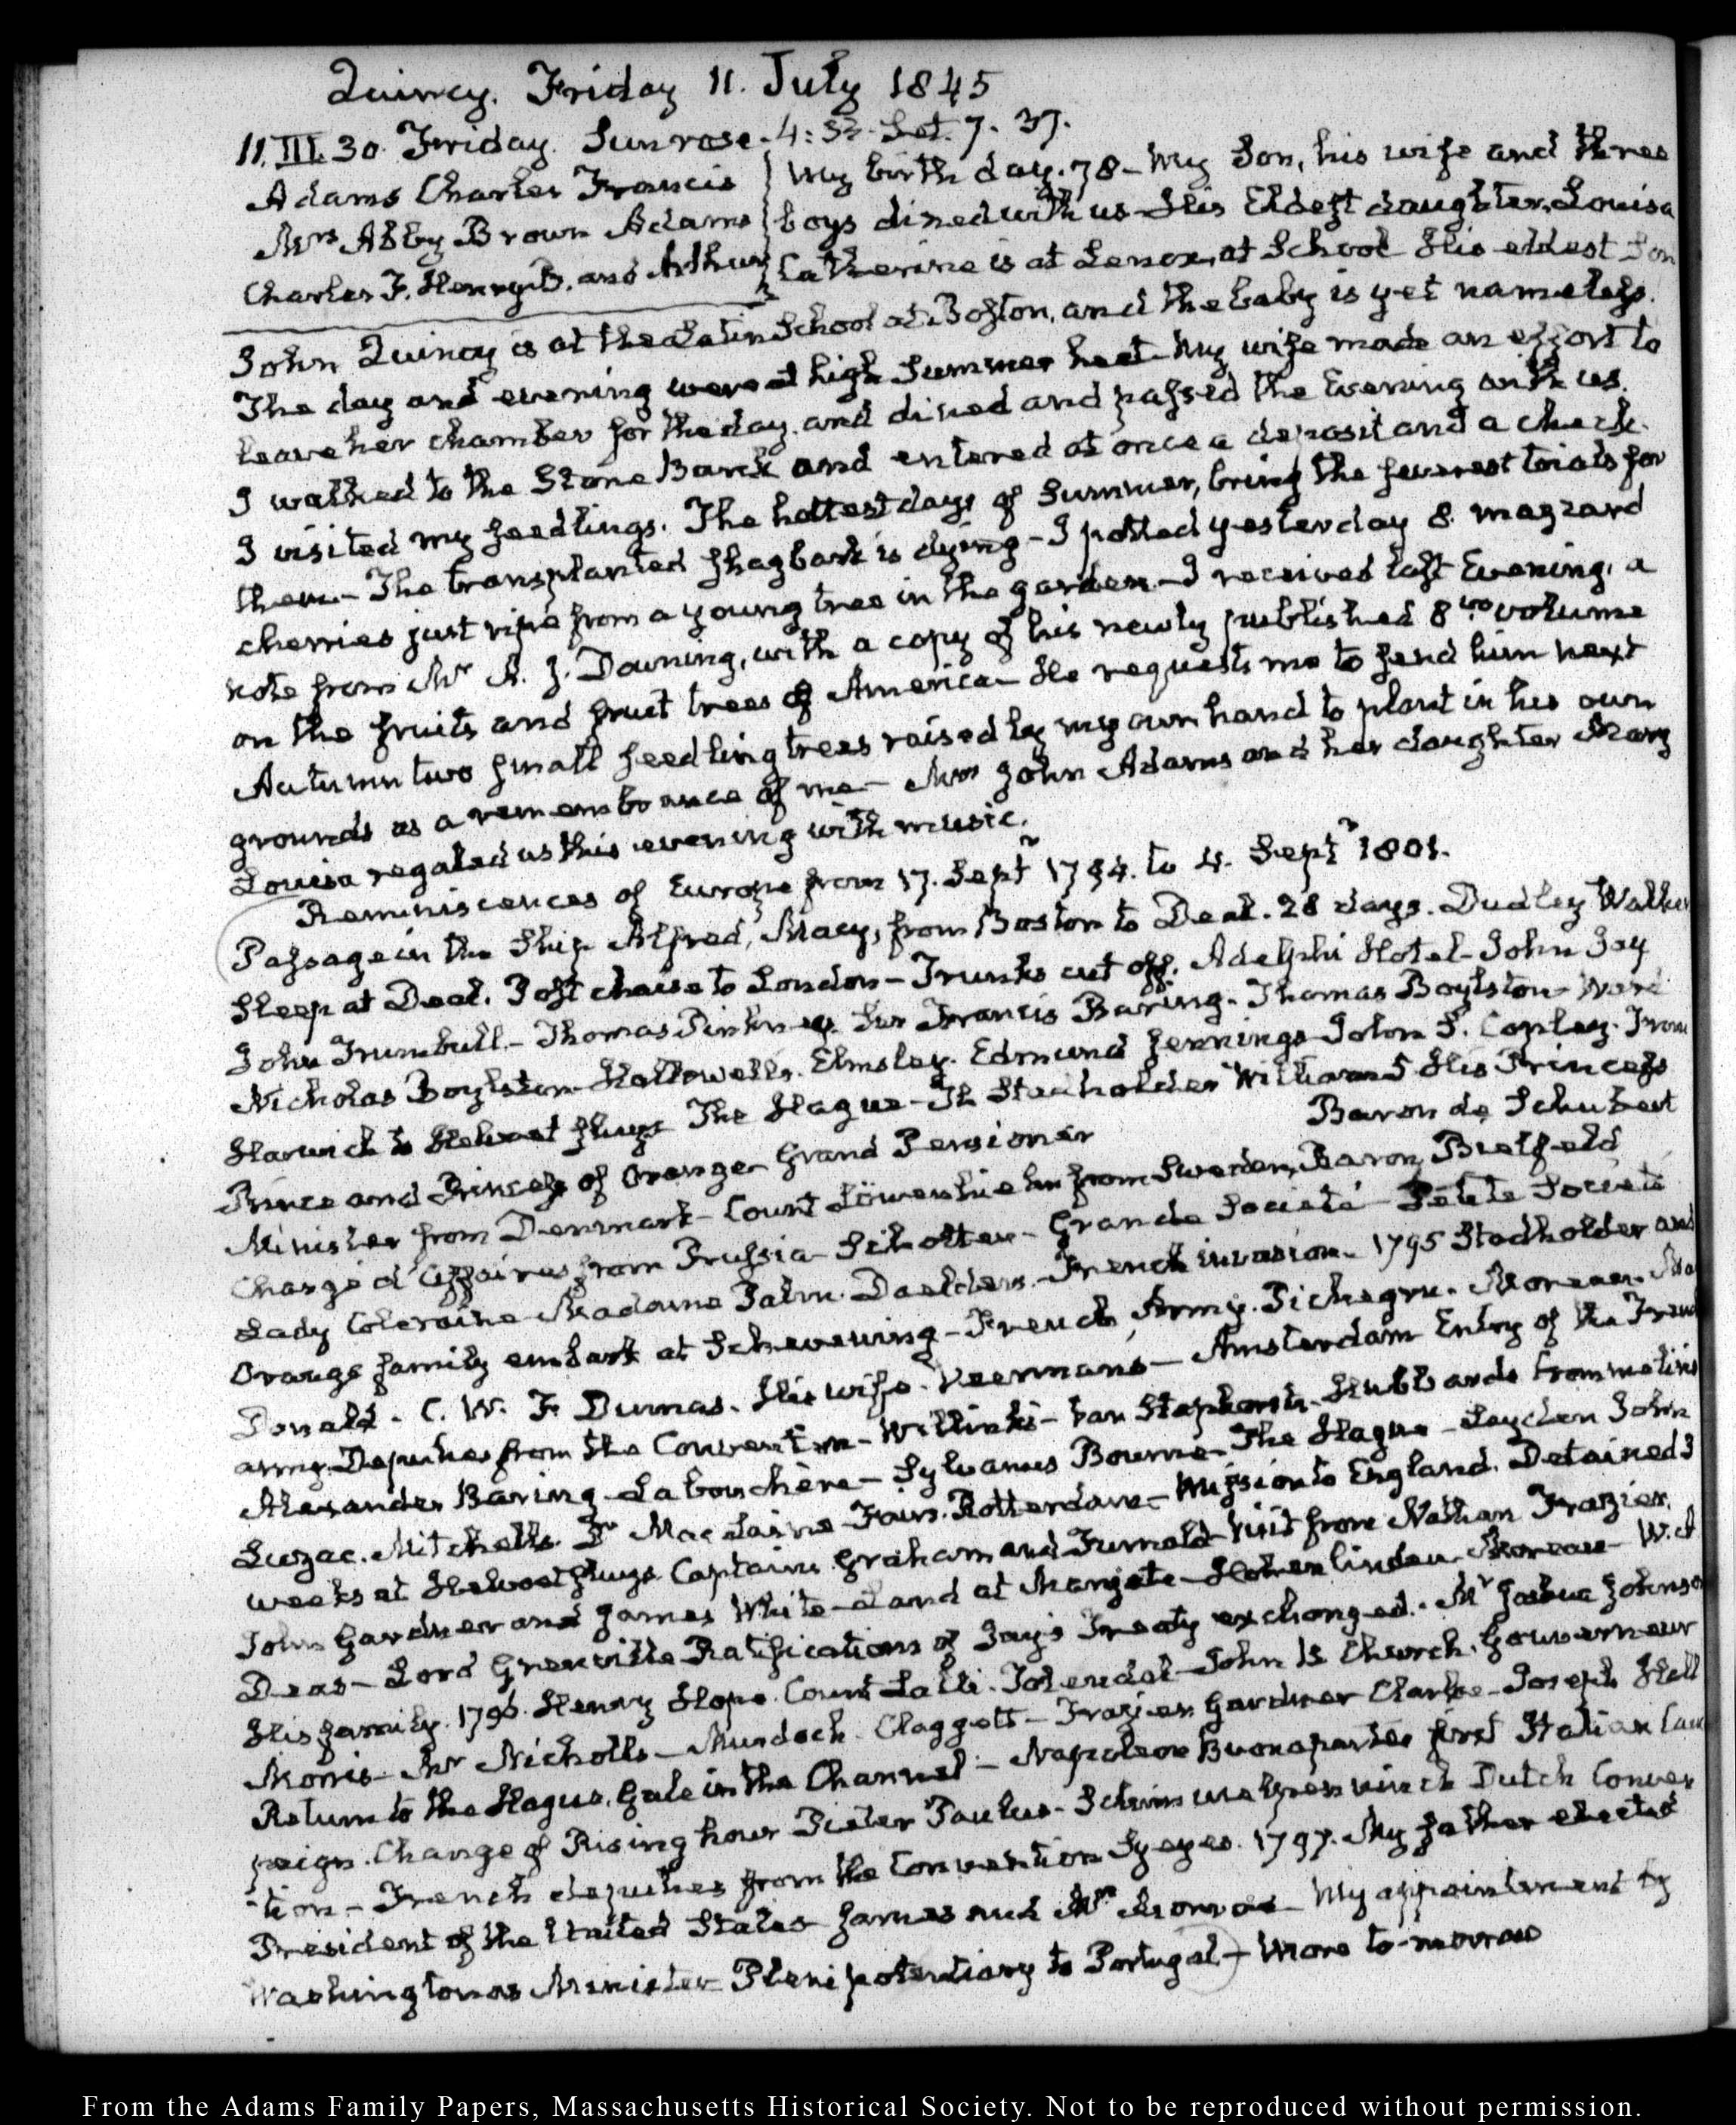 Quincy. Friday 11. July 1845
11. III. 30. Friday. Sun rose. 4:33. Set. 7. 37.
Adams Charles Francis
Mrs Abby Brown Adams
Charles F. Henry B. and Arthur
My birth day. 78 - My Son, his wife and three
boys dined with us - His Eldest daughter, Louisa
Catherine is at Lenox, at School His eldest Son
John Quincy is at the Latin School at Boston, and the baby is yet nameless.
The day and evening were at high Summer heat - My wife made an effort to
leave her chamber for the day, and dined and passed the Evening with us.
I walked to the Stone Bank and entered at once a deposit and a check.
I visited my seedlings. The hottest days of Summer, bring the severest trials for
them - The transplanted shagbark is dying - I potted yesterday 8. mazzard
cherries just ripe from a young tree in the garden - I received last Evening, a
note from Mr A. J. Downing, with a copy of his newly published 8vo volume
on the fruits and fruit trees of America - He requests me to send him next
Autumn two small seedling trees raised by my own hand to plant in his own
grounds as a remembrance of me - Mrs John Adams and her daughter Mary
Louisa regaled us this evening with music.
Reminiscences of Europe from 17. Septr 1794. to 4. Septr 1801.
Passage in the Ship Alfred, Macy, from Boston to Deal. 28 days. Dudley Walker
Sleep at Deal. Post chaise to London - Trunks cut off. Adelphi Hotel - John Jay
John Trumbull - Thomas Pinkney. Sir Francis Baring - Thomas Boylston - Ward
Nicholas Boylston - Hallowells. Elmsley. Edmund Jennings - John S. Copley. From
Harwich to Helvoet sluys The Hague - The Stadholder William 5 His Princess
Prince and Princess of Orange - Grand Pensioner
Baron de Schubart
Minister from Denmark - Count Löwenhielm from Sweden, Baron Bielfeld
Chargé d'Affaires from Prussia - Scholten - Grande Société - Petite Société
Lady Coleraine - Madame Palm. Daelders. - French invasion - 1795 Stadholder and
Orange family embark at Schevening - French Army. Pichegru. Moreau. Mac
Donald. C. W. F. Dumas. His wife. Veermans - Amsterdam Entry of the French
army. Deputies from the Convention - Willinks - Van Staphorst - Hubbards
Alexander Baring - Labouchère - Sylvanus Bourne - The Hague - Leyden John
Luzac. Mitchells. Dr Maclaine - Rotterdam - Mission to England. Detained 3
weeks at Helvoetsluys Captains Graham and Furnald - Visit from Nathan Frazier,
John Gardner and James White - Land at Margate - Hohenlinden. Moreau - W. A
Deas - Lord Grenville Ratifications of Jay's Treaty exchanged. - Mr Joshua Johnson
His family. 1796. Henry Hope. Count Lalli-Tolendal - John B Church. Gouverneur
Morris - Mr Nicholls - Murdoch. Claggett - Frazier Gardner Clarke - Joseph Hall
Return to the Hague. Gale in the Channel - Napoleon Buonapartes first Italian Cam
paign. Change of Rising hour Pieter Paulus - Schimmelpenninck Dutch Conven
-tion - French deputies from the Convention Syeyes. 1797. My father elected
President of the United States James and Mrs Monroe - My appointment by
Washington as Minister Plenipotentiary to Portugal - More to-morrow
From the Adams Family Papers, Massachusetts Historical Society. Not to be reproduced without permission.